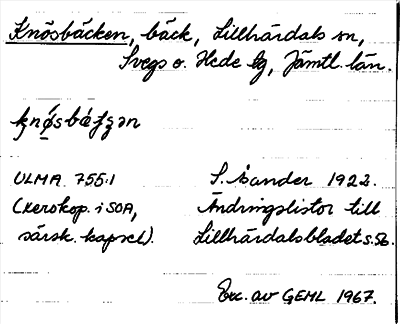 Knösbäcken, bäck, Lillhärdals sn,
Svegs o. Hede tg, Jämtl. län.
ULMA 755:1 S. Åsander 1922.
(Xerokop. i SOA, Ändringslistor till
särsk. kapsel). Lillhärdalsbladet s. 56.
Exc. av GEHL 1967.